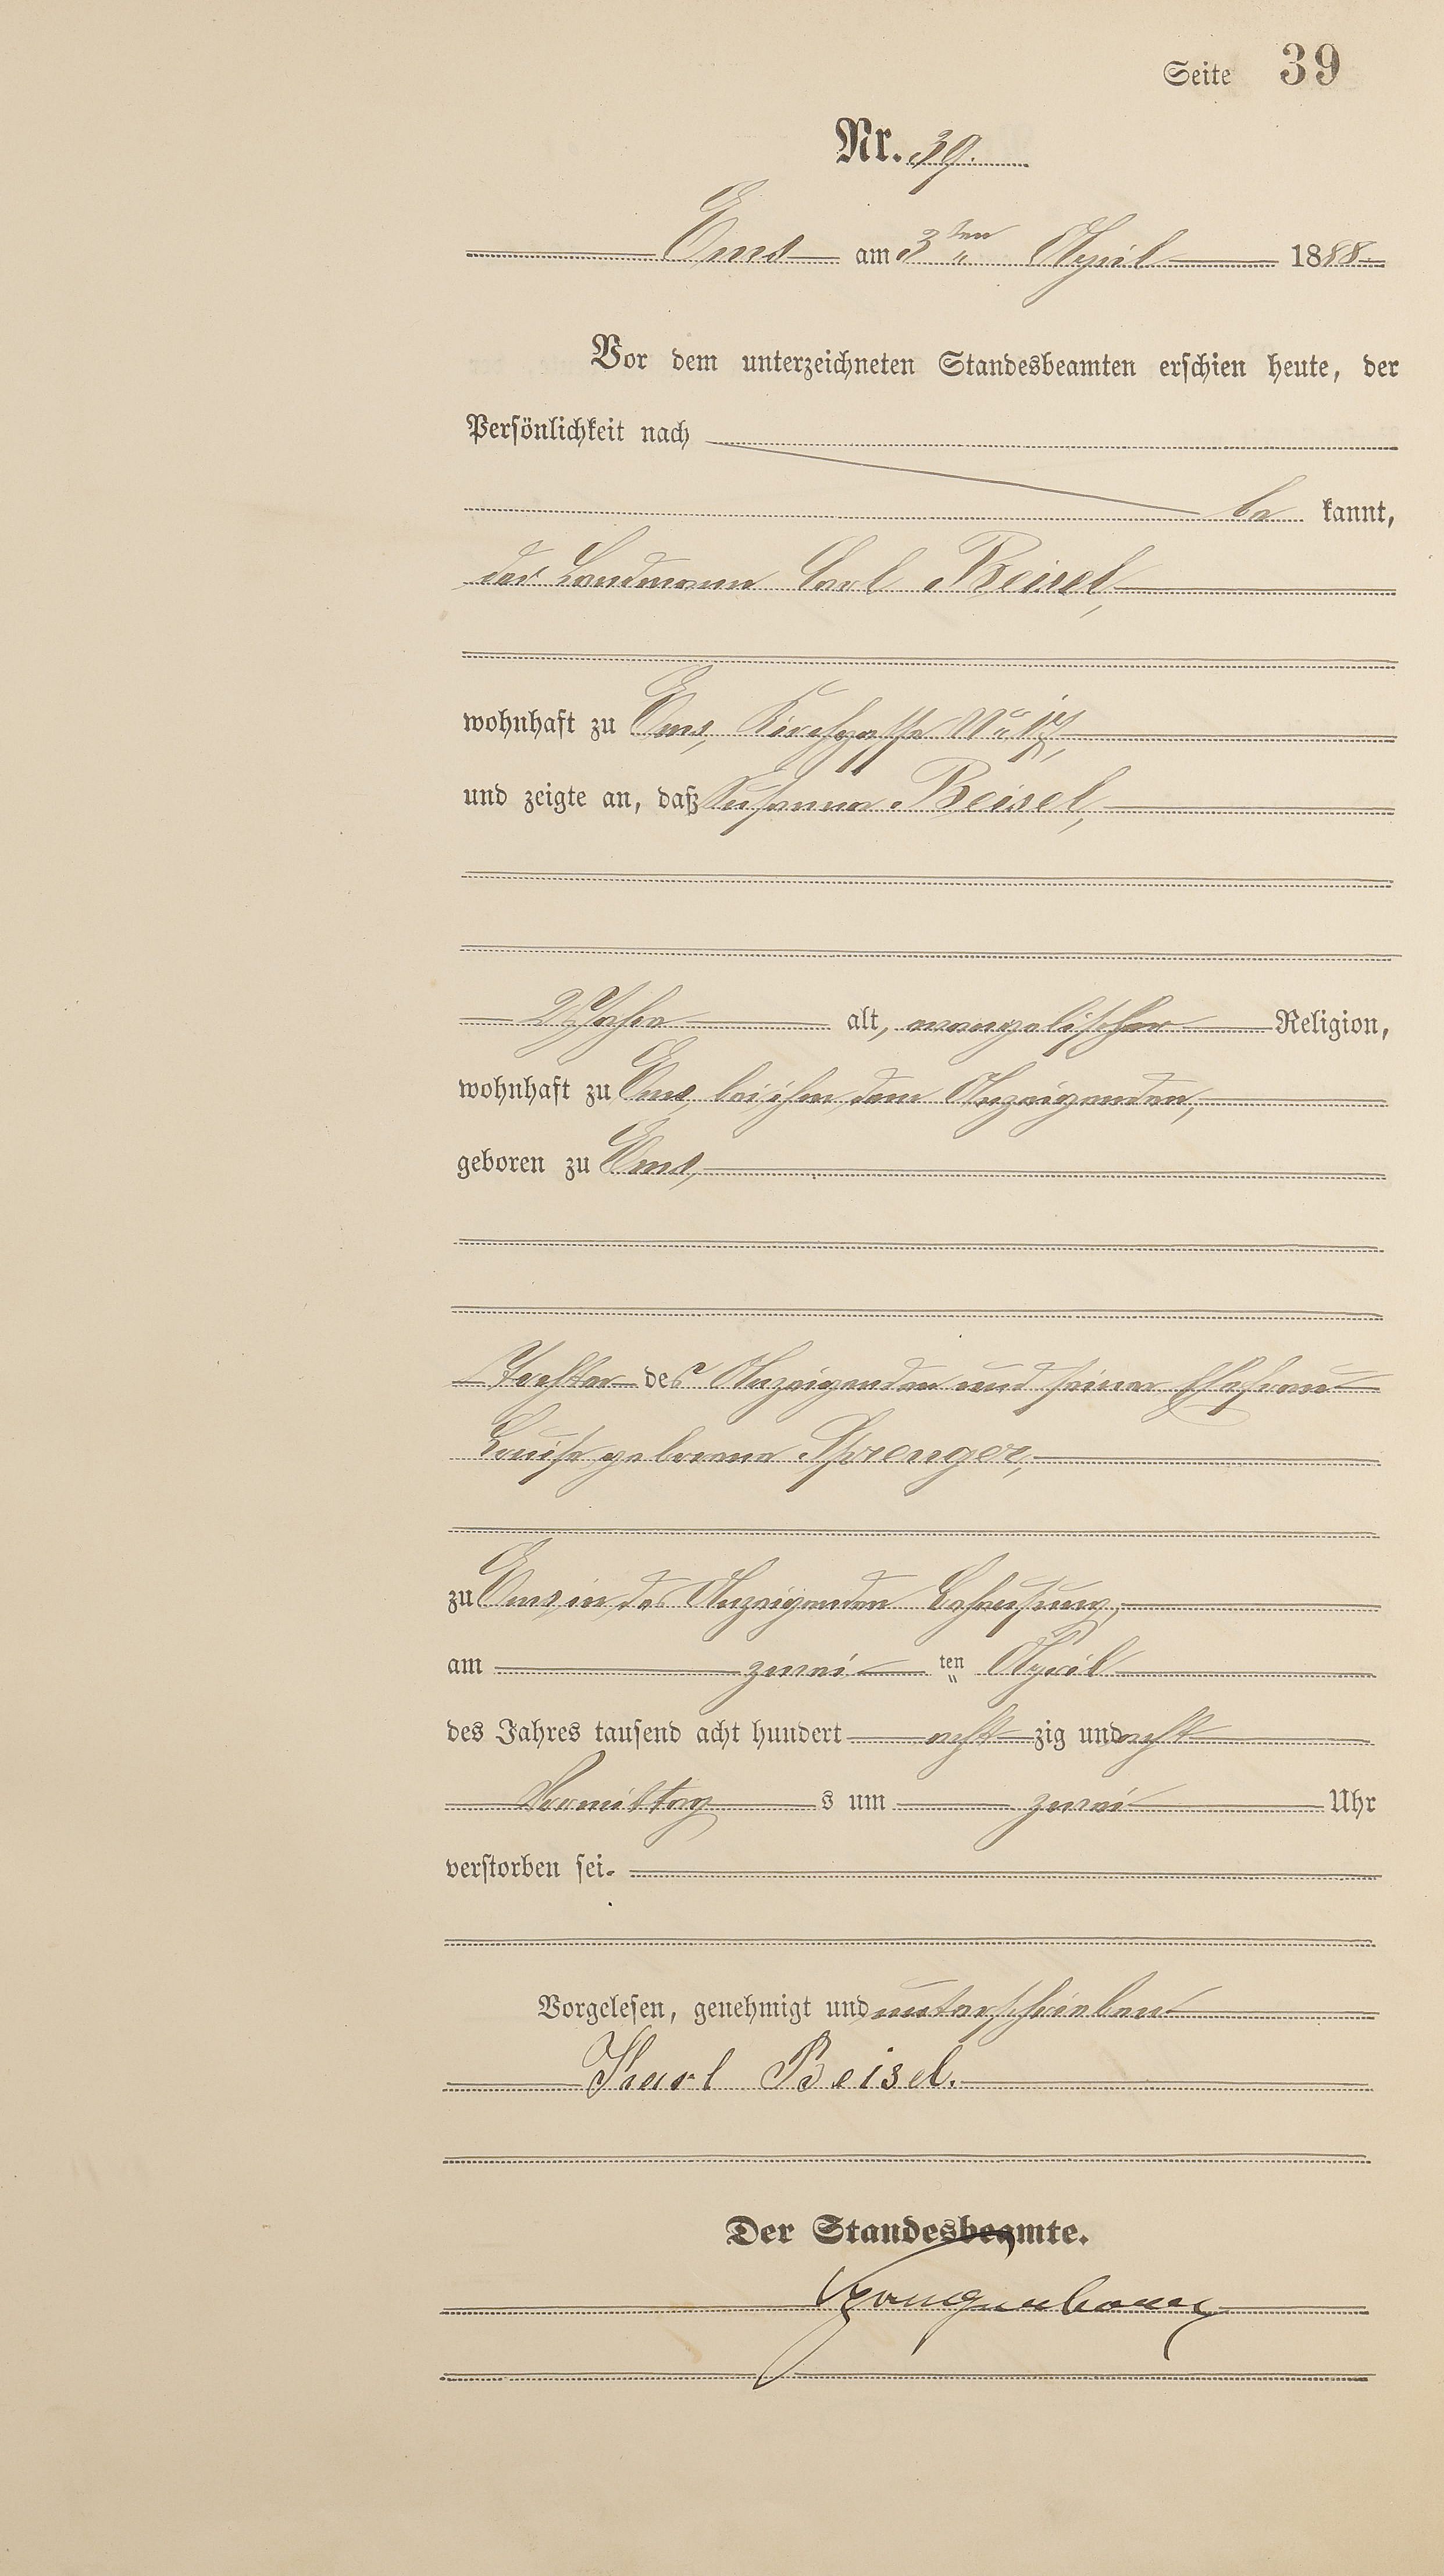 Seite 39
Nr. 39.
Ems am 3ten April 1888
Vor dem unterzeichneten Standesbeamten erschien heute, der
Persönlichkeit nach
be kannt,
der Landmann Carl Beisel,
wohnhaft zu Ems, Kirchgasse No
und zeigte an, daß Susanna Beisel,
2 Jahre alt, evangelischer Religion,
wohnhaft zu Ems, bei ihm, dem Anzeigenden,
geboren zu Ems,
Tochter des Anzeigenden und seiner Ehefrau
Louise geborene Sprenger,
zu Ems in des Anzeigenden Behausung,
am zwei ten April
des Jahres tausend acht hundert acht zig und acht
Vormittag s um zwei Uhr
verstorben sei.
Vorgelesen, genehmigt und unterschrieben
Karl Beisel.
Der Standesbeamte.